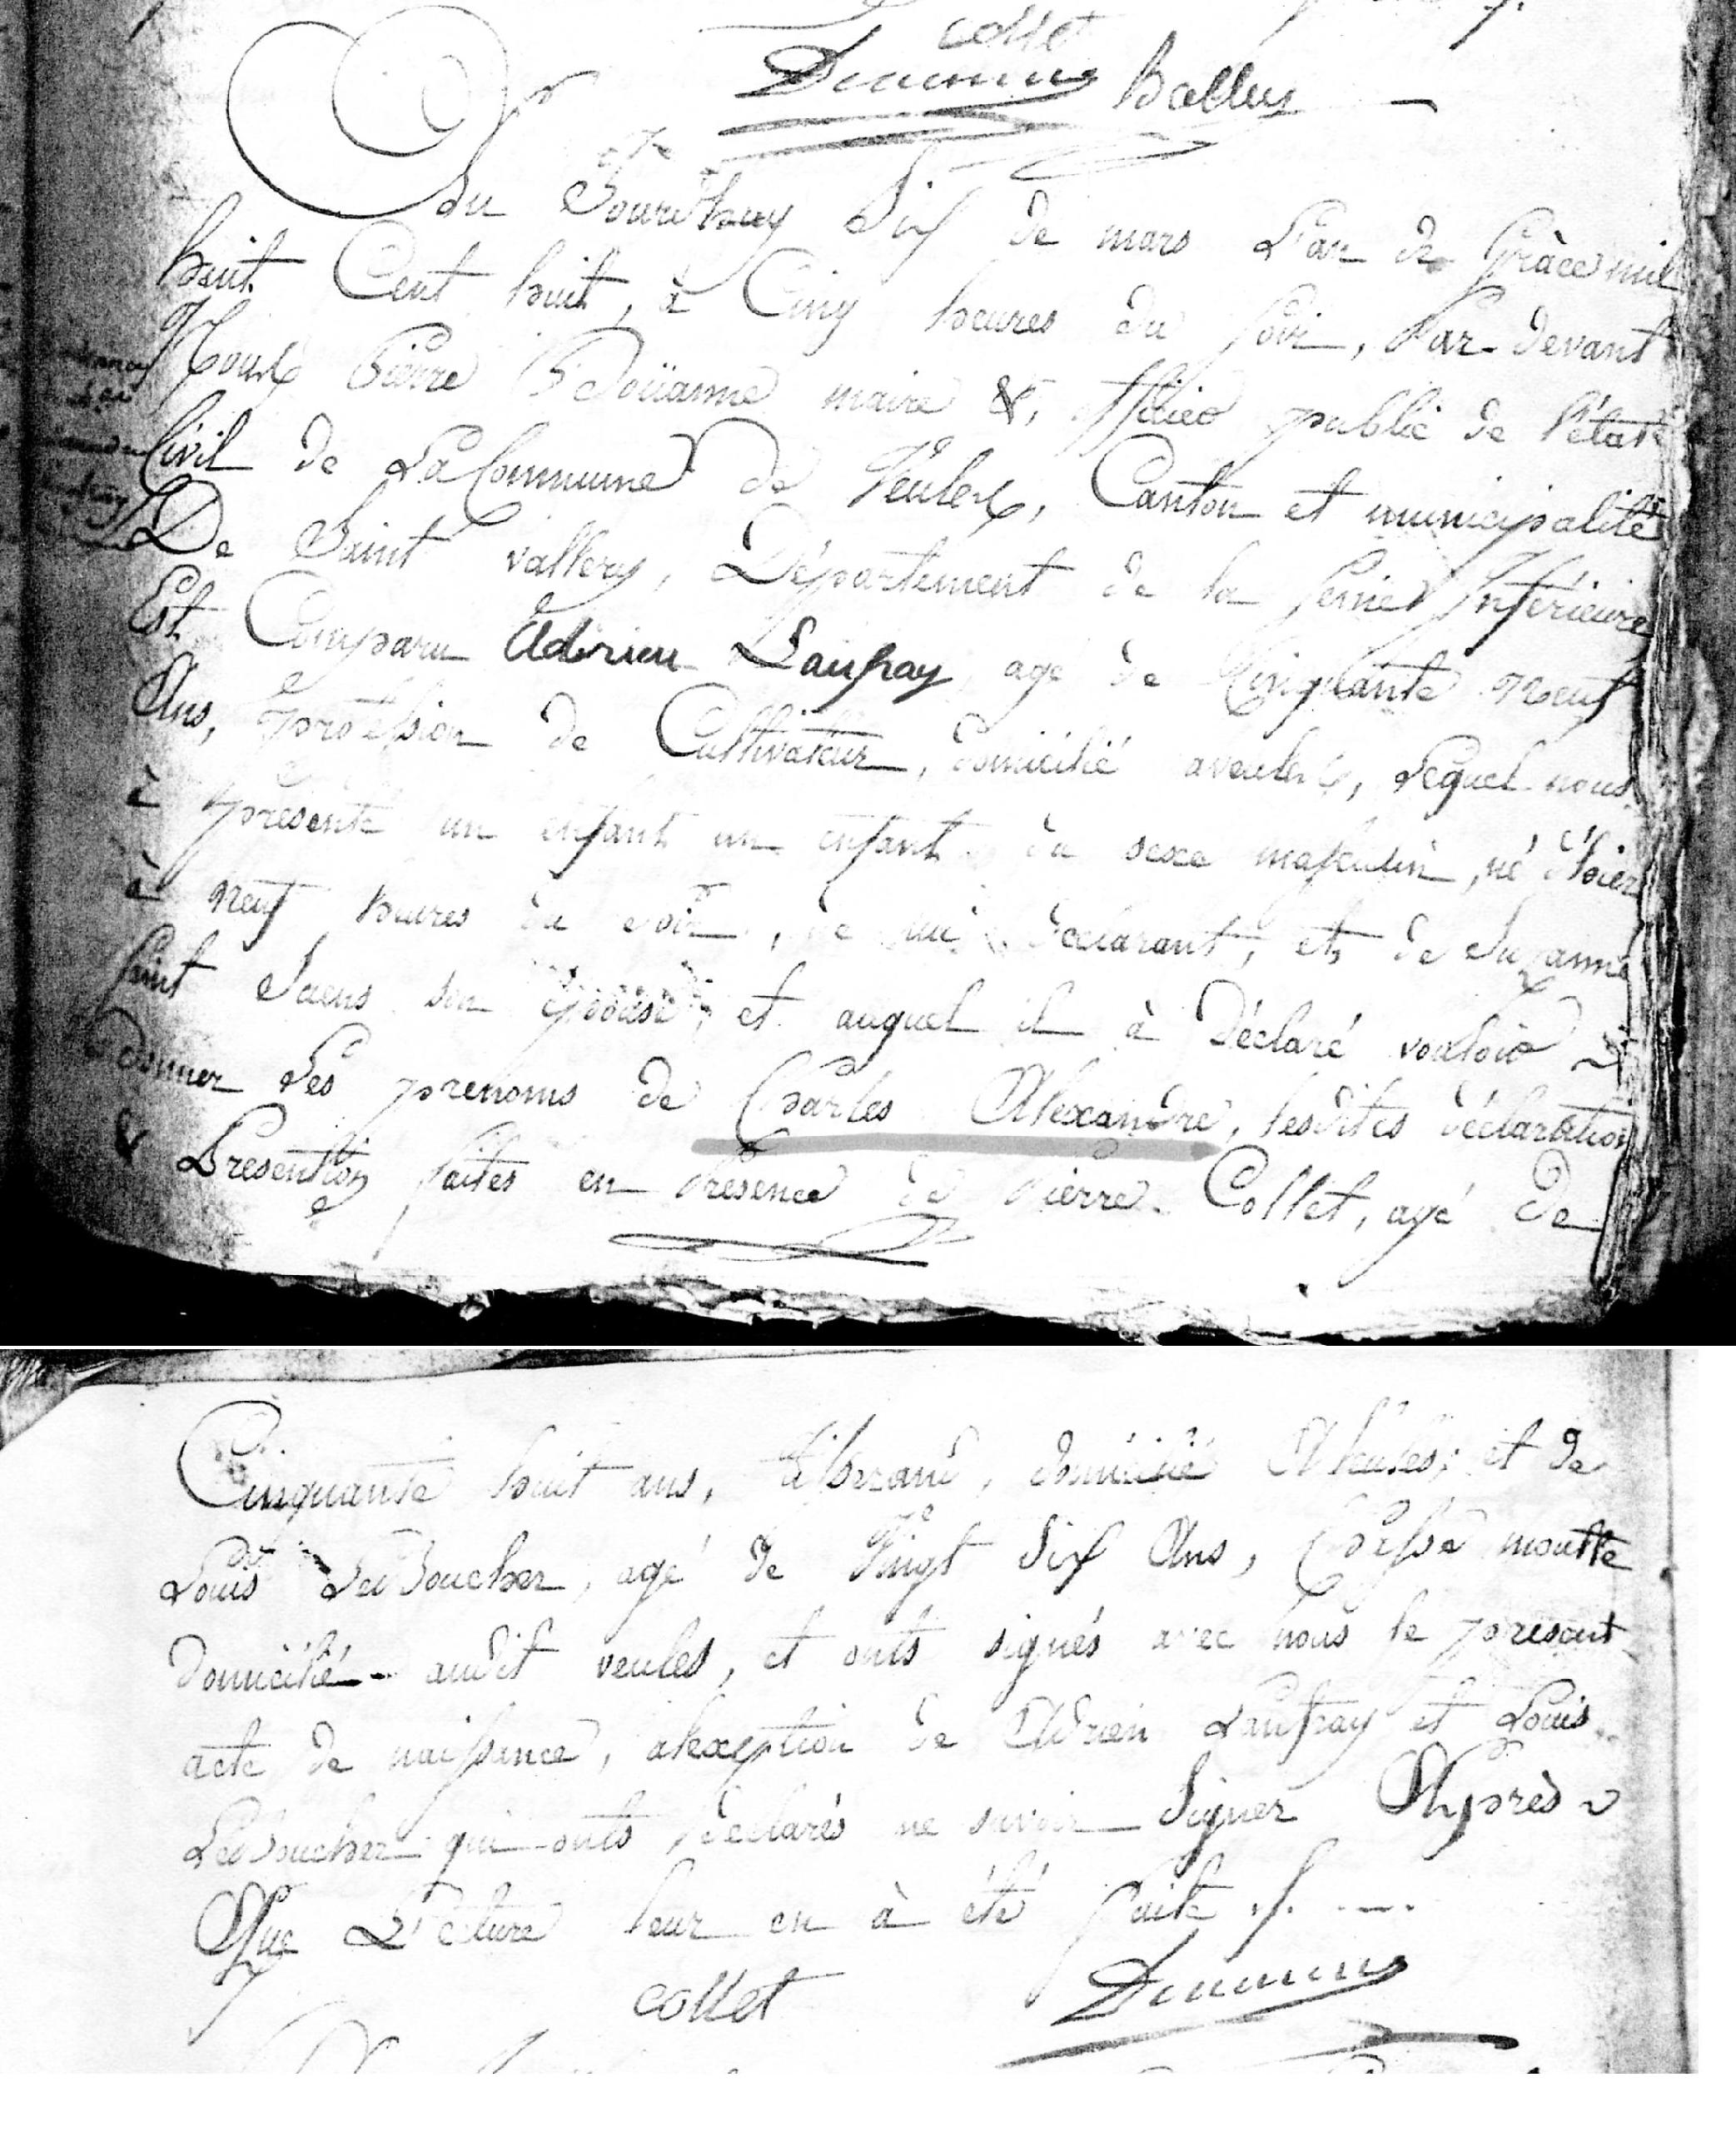 collet
Ballus
Du Jourd'huy Six de mars L'an de Grâce mil
huit Cent huit, à Cinq heures du soir, Par devant
Nous Pierre maire &, officier public de l'état
Civil de La Commune de Veules, Canton et municipalité
De Saint vallery, Département de la Seine Inférieure
Est Comparu Adrien Laufray, agé de Cinquante neuf
Ans, profession de Cultivateur, domicilié aveules, Lequel nous
à présenté un enfant un enfant du sexe masculin, né d'hier
à neuf heures du soir, de lui déclarant, et de Suzanne
Saint Saens son épouse, et auquel il à Déclaré vouloir
donner Les prenoms de Charles Alexandre, lesdites déclaration
& Presention faites en Présence de Pierre Collet, agé De
Cinquante huit ans, tisserand, domicilié A Veules; et de
Louis LeBoucher, agé de Vingt Six Ans, Chasse moutte
domicilié audit veules, et onts signés avec nous le present
acte de naissance, alexeption de Adrien Laufray et Louis
LeBoucher qui onts déclarés ne savoir Signer Après
Que Lecture leur en à été faite ./.
collet